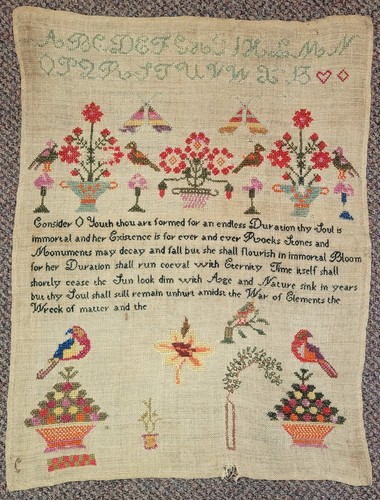 ABCDEFGHIJKLMN
OPQRSTUVWX
Consider O Youth thou are formed for an endless Duration thy Soul is
immortal and her Existence is for ever and ever Rocks Stones and
Monuments may decay and fall but she shall flourish in immortal Bloom
for her Duration shall run coeval with Eternity Time itself shall
shortly cease the Sun look dim with Age and Nature sink in years
but thy Soul shall still remain unhurt amidst the War of Elements the
Wreck of matter and the